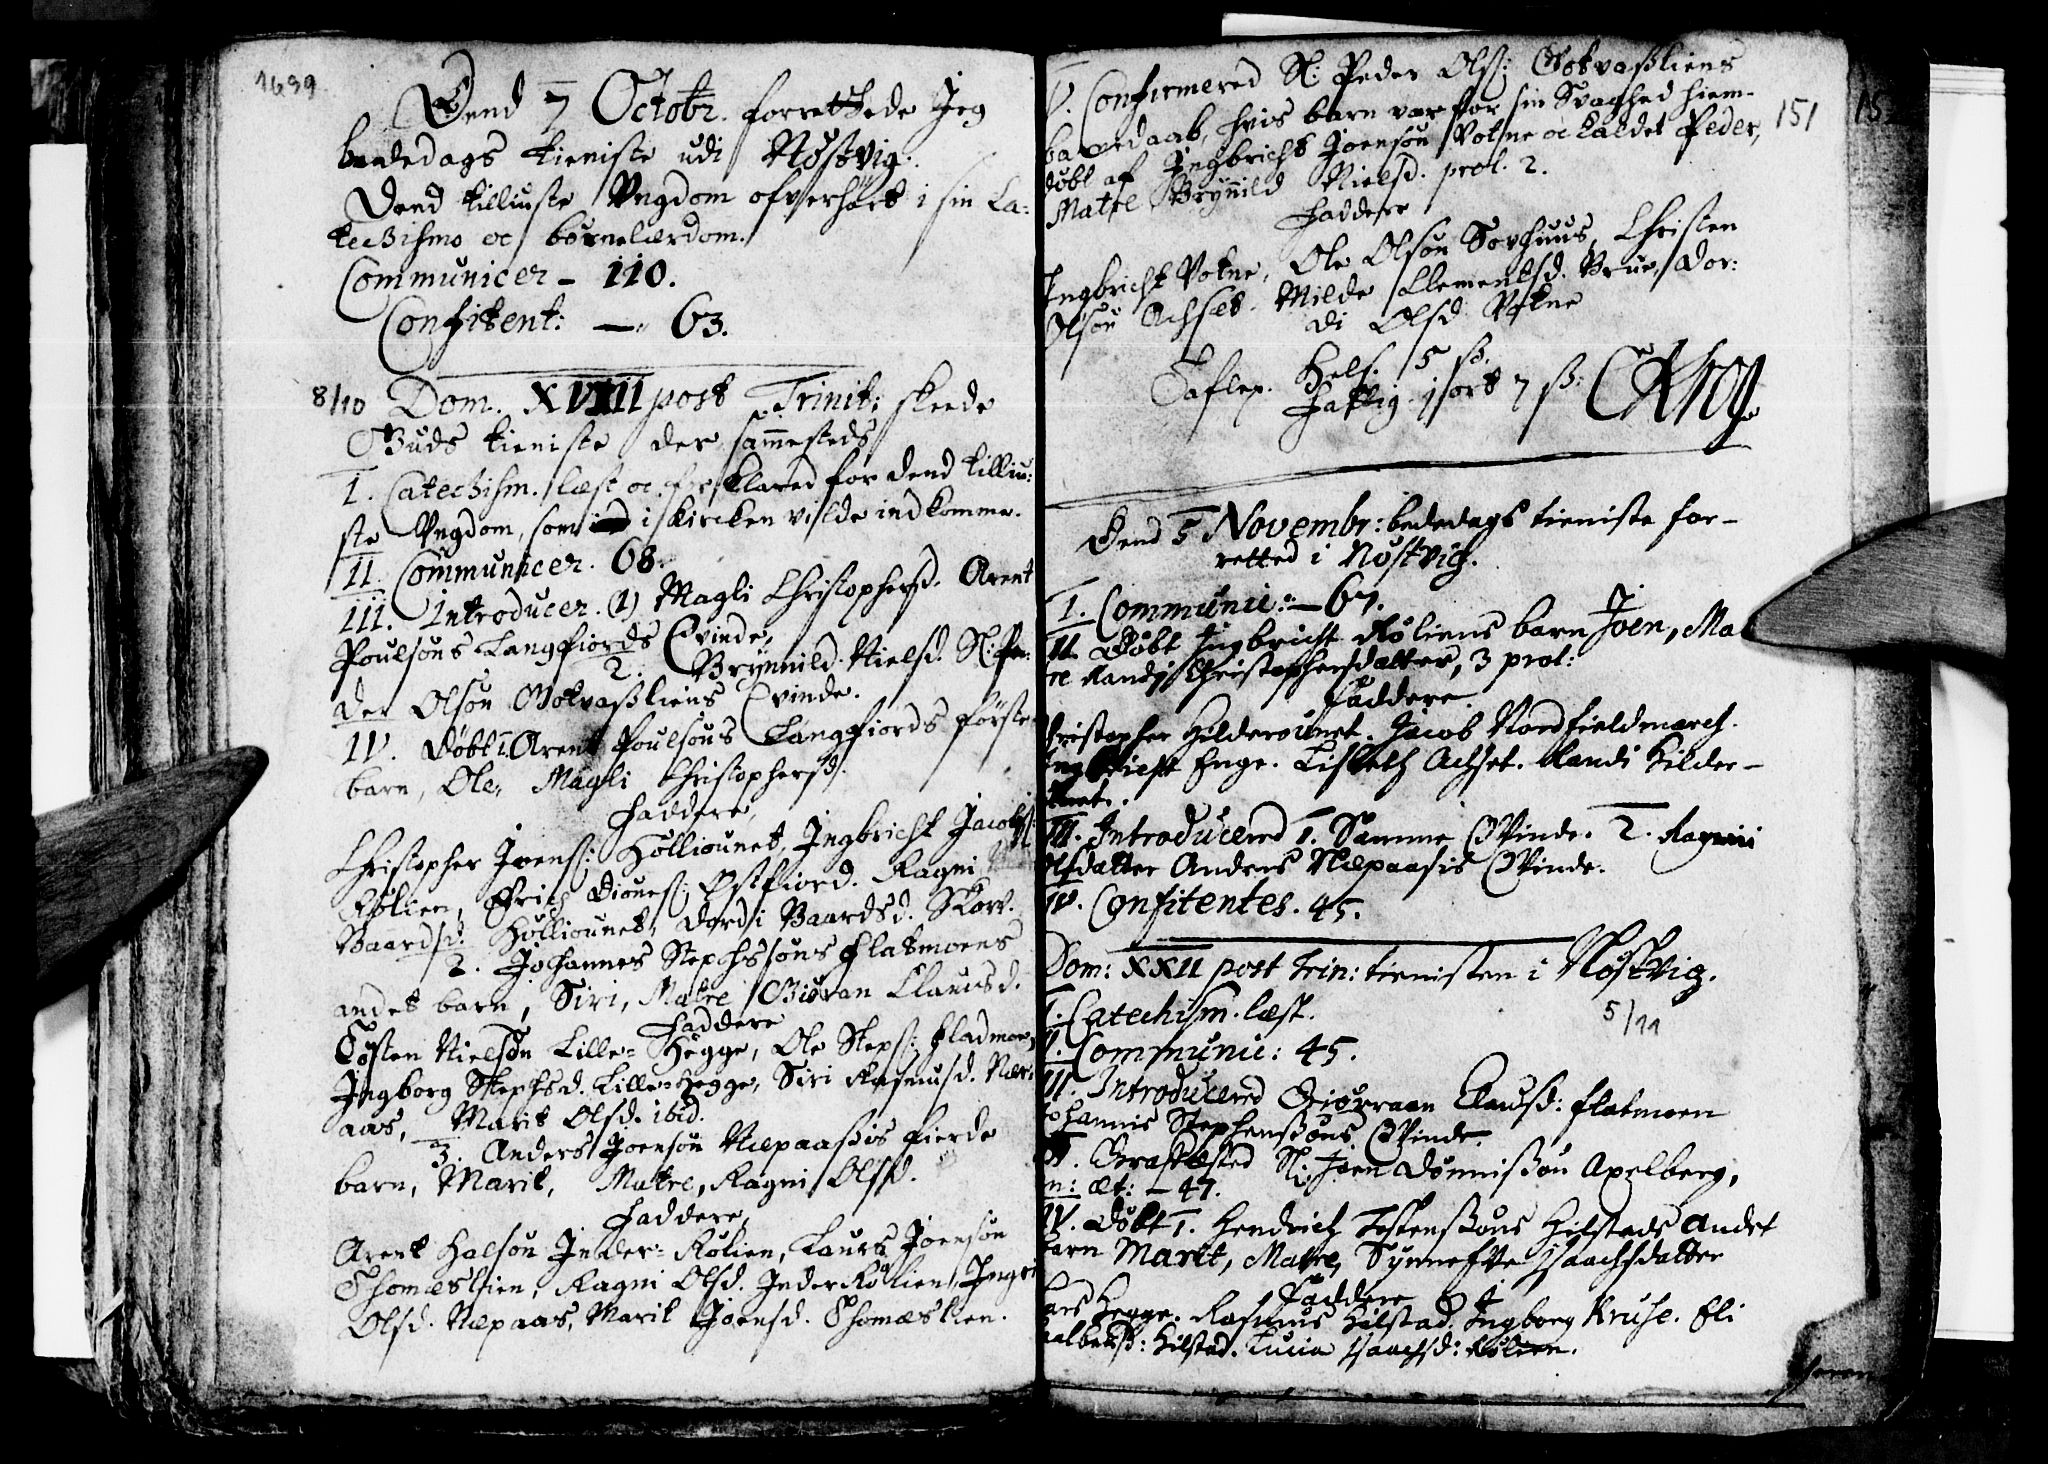 1699
Dend 7 Octobr. forrettede Jeg
bededags tieniste udi Nøstvig.
Dend tilliuste Ungdom ofverhört i sin Ca-
techismo oc börnelærdom.
Communicer – 110.
Confitent: — 63.
8/10 Dom. XVIII post Trinit: skeede
Guds tieniste der sammesteds
I. Catechism. læst oc forklared for dend tilliu-
ste Ungdom, som i kircken vilde indkomme.
II. Communicer. 68.
III. Introducer. (1) Magli Christophersd. Arent
Poulsöns Langfiords Qvinde,
2. Brÿnnild Nielsd. Sl: Pe-
der Olsön Gotvaßliens Qvinde.
IV. Döbt 1. Arent Poulsöns Langfiords förste
barn, Ole, Magli Christophersd.
Faddere,
Christopher Joens: Hölliounet, Ingbricht Jacobs:
Rölien, Erich Diones: Østfiord. Ragni
Baardsd. Hölliounet, Dordi Baardsd. Skorv.
2. Johannes Stephssöns Flatmoens
andet barn, Siri, Matre Giöran Clausd.
Faddere
Tosten Nielsön Lille-Hegge, Ole Steps: Fladmoe,
Ingborg Stephsd. Lille-Hegge, Siri Rasmusd. Nær-
aas, Marit Olsd. ibid.
3. Anders Joensön Næpaaßis fierde
barn, Marit, Matre, Ragni Olsd.
Faddere,
Arent Halsön Inder-Rölien, Laurs Joensön
Thomæslien, Ragni Olsd. Inder Rölien, Ingri
Olsd. Næpaas, Marit Joensd. Thomæslien.
151
V. Confirmered Sl: Peder Ols: Gotvaßliens
barnedaab, hvis barn var for sin Svaghed hiem-
döbt af Ingbricht Joensön Votne oc kaldet Peder,
Matre Brÿnnild Nielsd. prol. 2.
Faddere
Ingbricht Votne, Ole Olsön Sorhuus, Christen
Olsön Achset. Milde Clementsd. Brue, Dor-
di Olsd Votne
Taflep. Hels. 5 ß.
Fattig. 1 ort 7 ß:
Dend 5 Novembr: bededags tieniste for-
retted i Nøstvig.
I. Communic: – 67.
II. Döbt Ingbricht Röliens barn Joen, Ma-
re Randj Christophersdatter, 3 prol:
Faddere.
Christopher Hilderounet. Jacob Nordfieldmarch.
Ingbricht Enge. Lisbeth Achset. Randi Hilder-
ounet.
III. Introducered 1. Samme Qvinde. 2. Ragnni
Olsdatter Anders Næpaasis Qvinde.
IV. Confitentes. 45.
Dom: XXII post Trin: tienisten i Nøstvig.
5/11
I. Catechism. læst.
II. Communic: 45.
III. Introducered Giörraan Clausd: Flatmoen
Johannis Stephenßöns Qvinde.
IV. Grafkæsted Sl: Joen Dönnißön Apelberg,
an: æt: – 47.
IV. Döbt 1. Hendrich Tostenßöns Hilstads Andet
barn Marit, Matre, Synnefve Isaachsdatter
Faddere
Lars Hegge. Rasmus Hilstad. Ingborg Kruse. Eli
Hilstad. Lucia Isaachsd: Rölien.